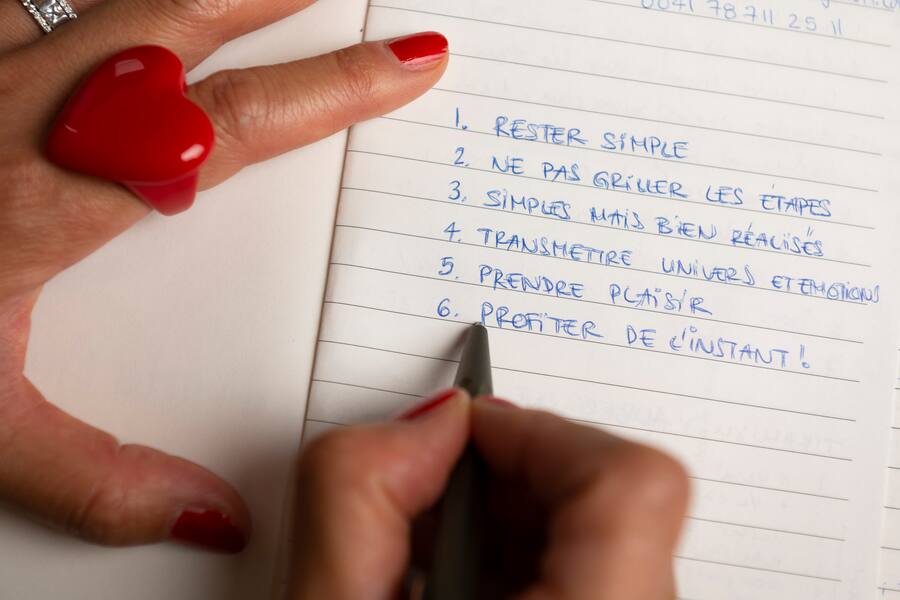 0041 78 711 25 11
1. RESTER SIMPLE
2. NE PAS GRILLER LES ÉTAPES
3. SIMPLES MAIS BIEN RÉALISÉS
4. TRANSMETTRE UNIVERS ET EMOTIONS
5. PRENDRE PLAISIR
6. PROFITER DE L'INSTANT!